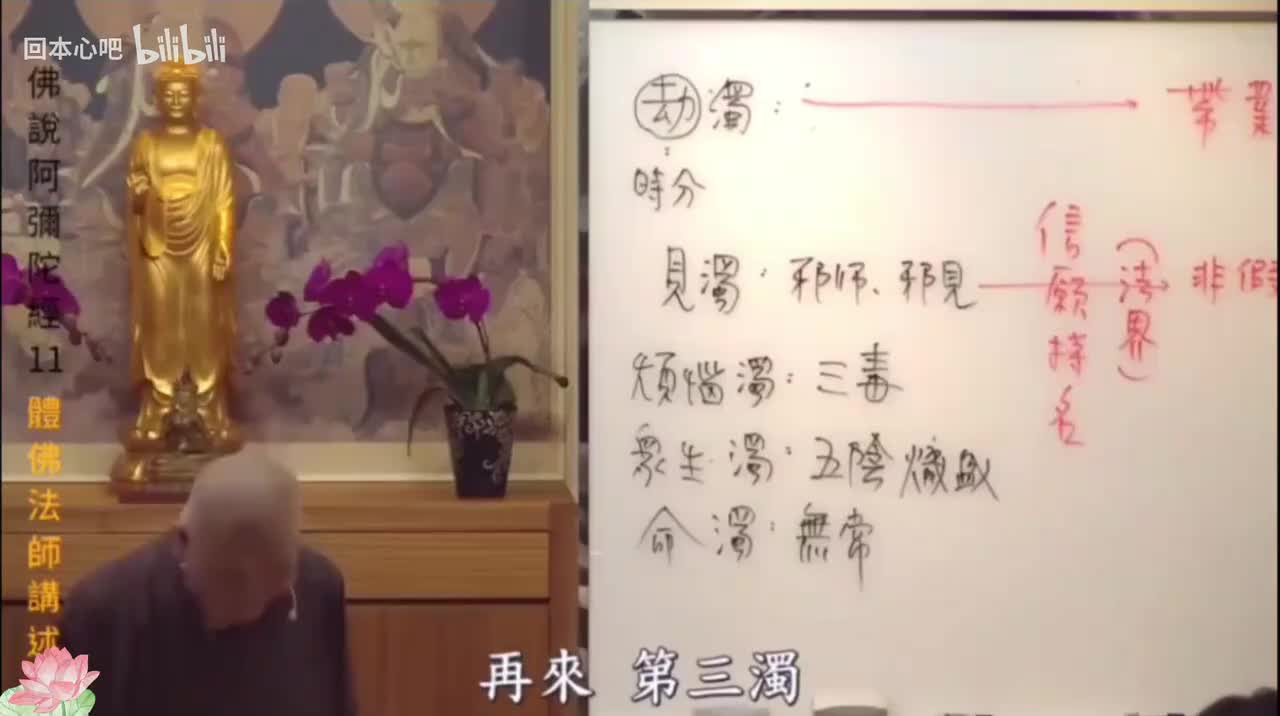 回本心吧 bilibili
佛說阿彌陀經11 體佛法師講述
劫濁：
帶業
時分
見濁：邪師、邪見
信願持名
（法界）
非假
煩惱濁：三毒
眾生濁：五陰熾盛
命濁：無常
再來 第三濁